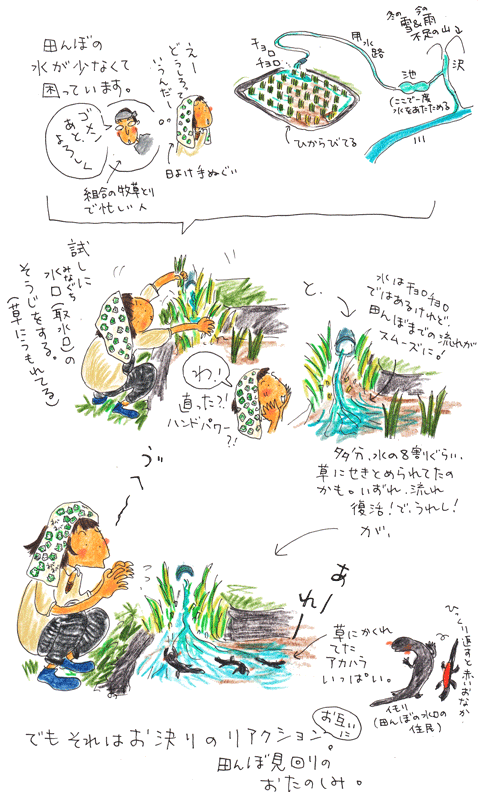 田んぼの
水が少なくて
困っています。
えー
どうしろって
いうんだ
ゴメン、
あと、
よろしく
組合の牧草とり
で忙しい人
日よけ手ぬぐい
チョロ
チョロ
用水路
冬の
雪&雨
今の
不足の山
沢
池
(ここで一度
水をあたためる)
川
ひからびてる
試しに
みなくち
水口(取水口)の
そうじをする。
(草にうもれてる)
と、
水はチョロチョロ
ではあるけれど、
田んぼまでの流れが
スムーズに。
わ!
直った?!
ハンドパワー
?!
多分、水の8割ぐらい、
草にせきとめられてたの
かも。いずれ、流れ
復活!で、うれし!
が、
あれ
草にかくれ
てた
アカハラ
いっぱい。
ひっくり返すと赤いおなか
イモリ
(田んぼの水口の
住民)
でもそれはお決りのリアクション。
お互いに
田んぼ見回りの
おたのしみ。